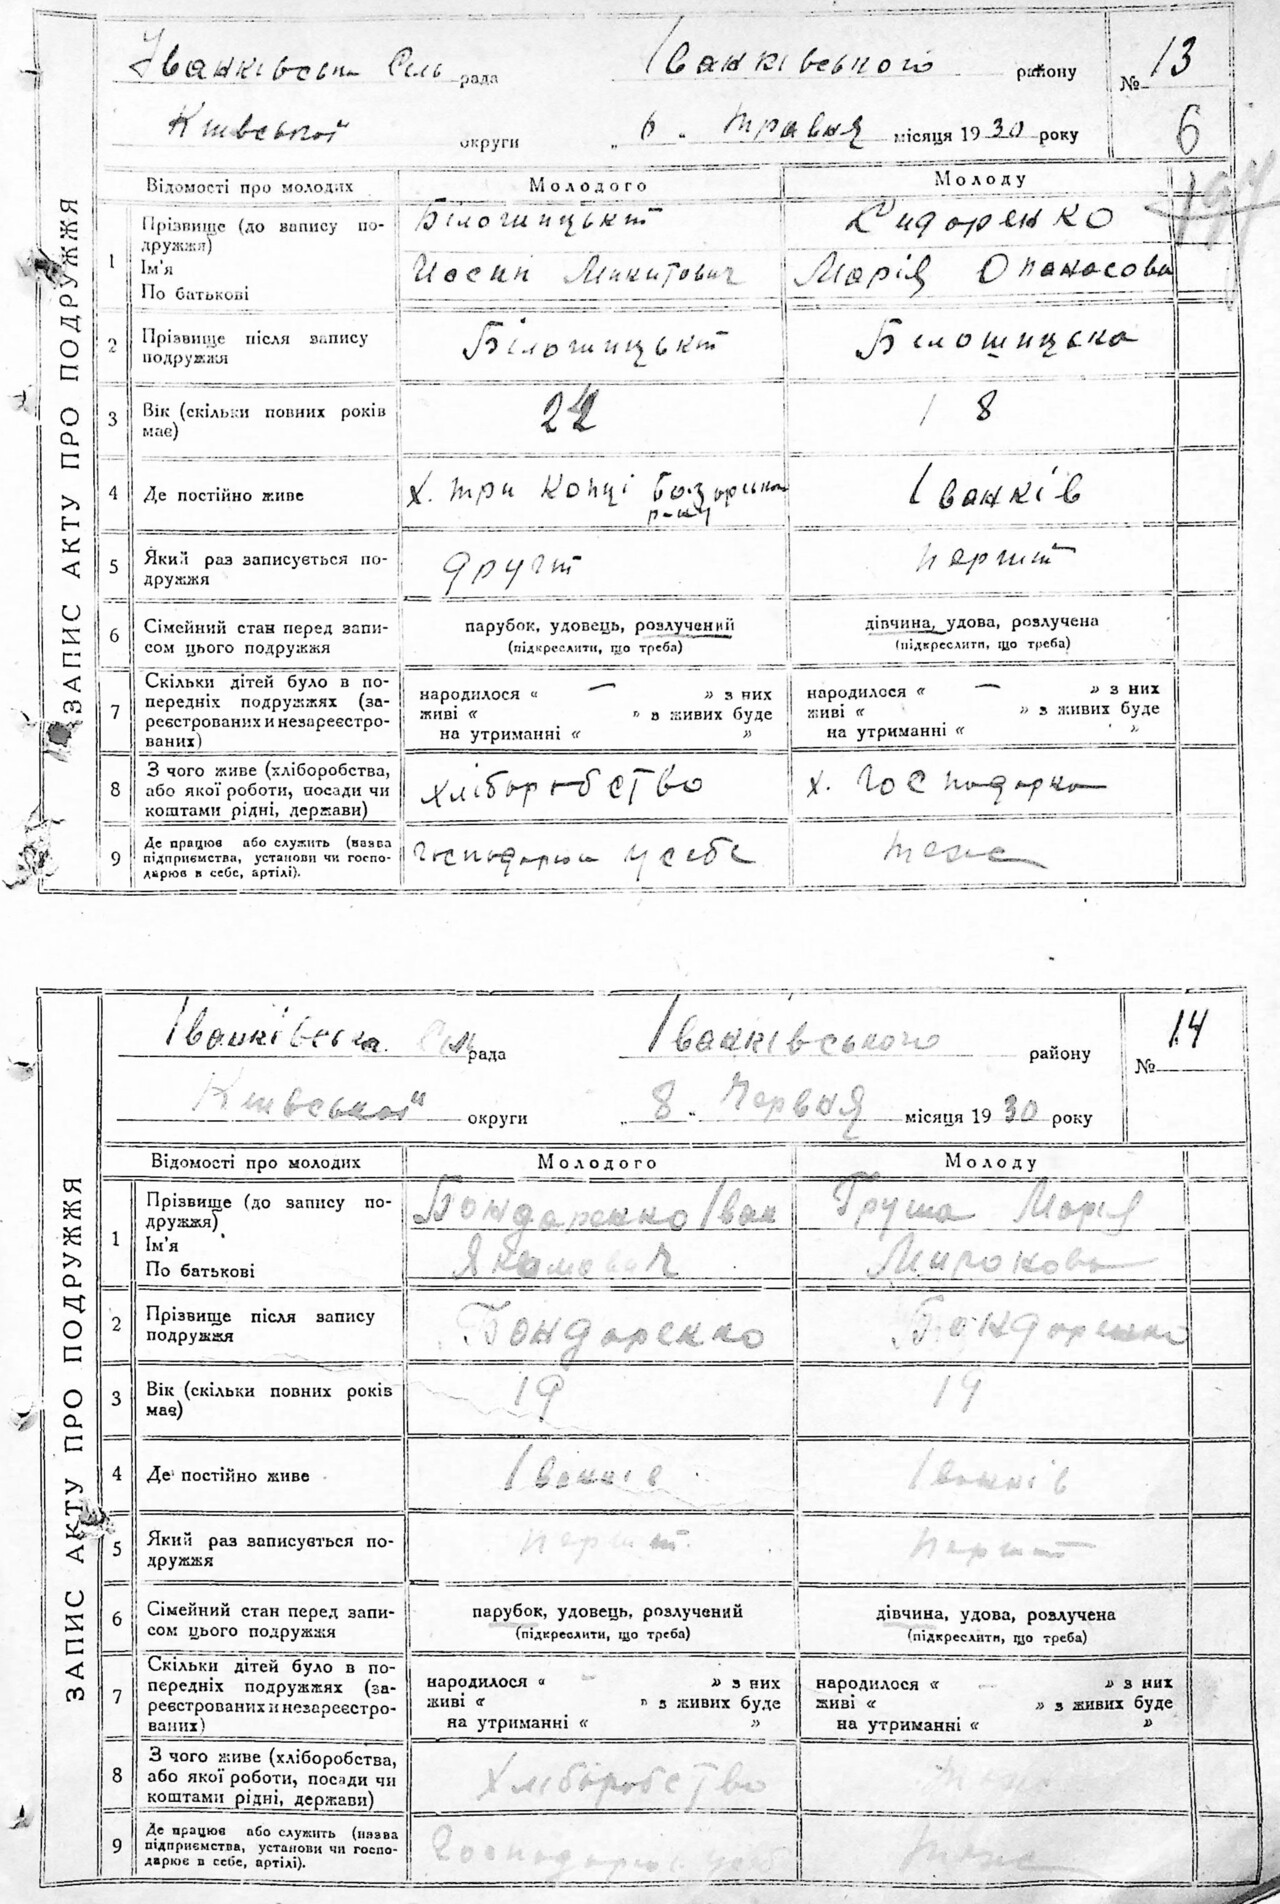 ЗАПИС АКТУ ПРО ПОДРУЖЖЯ
Іванківська Сіль рада Іванківського району № 13
Київської округи „ 6 „ травня місяця 1930 року 6
197
Відомості про молодих Молодого Молоду
1 Прізвище (до запису подружжя) Білошицький Сидоренко
Ім'я
По батькові Йосип Микитович Марія Опанасова
2 Прізвище після запису подружжя Білошицький Білошицька
3 Вік (скільки повних років має) 22 18
4 Де постійно живе х. три копці Базарськ р-ну Іванків
5 Який раз записується подружжя другий перший
6 Сімейний стан перед записом цього подружжя парубок, удовець, розлучений дівчина, удова, розлучена
(підкреслити, що треба) (підкреслити, що треба)
7 Скільки дітей було в попередніх подружжях (зареєстрованих и незареєстрованих) народилося « — » з них народилося « — » з них
живі « » з живих буде живі « » з живих буде
на утриманні « » на утриманні « »
8 З чого живе (хліборобства, або якої роботи, посади чи коштами рідні, держави) хліборобство х. господарка
9 Де працює або служить (назва підприємства, установи чи господарює в себе, артілі). у себе теж
ЗАПИС АКТУ ПРО ПОДРУЖЖЯ
Іванківська Сіль рада Іванківського району № 14
Київської округи „ 8 „ Червня місяця 1930 року
Відомості про молодих Молодого Молоду
1 Прізвище (до запису подружжя) Бондаренко Іван Груша Марія
Ім'я
По батькові Якимович Миронова
2 Прізвище після запису подружжя Бондаренко Бондаренко
3 Вік (скільки повних років має) 19 19
4 Де постійно живе Іванків Іванків
5 Який раз записується подружжя перший перший
6 Сімейний стан перед записом цього подружжя парубок, удовець, розлучений дівчина, удова, розлучена
(підкреслити, що треба) (підкреслити, що треба)
7 Скільки дітей було в попередніх подружжях (зареєстрованих и незареєстрованих) народилося « — » з них народилося « — » з них
живі « » з живих буде живі « » з живих буде
на утриманні « » на утриманні « »
8 З чого живе (хліборобства, або якої роботи, посади чи коштами рідні, держави) Хліборобство
9 Де працює або служить (назва підприємства, установи чи господарює в себе, артілі).